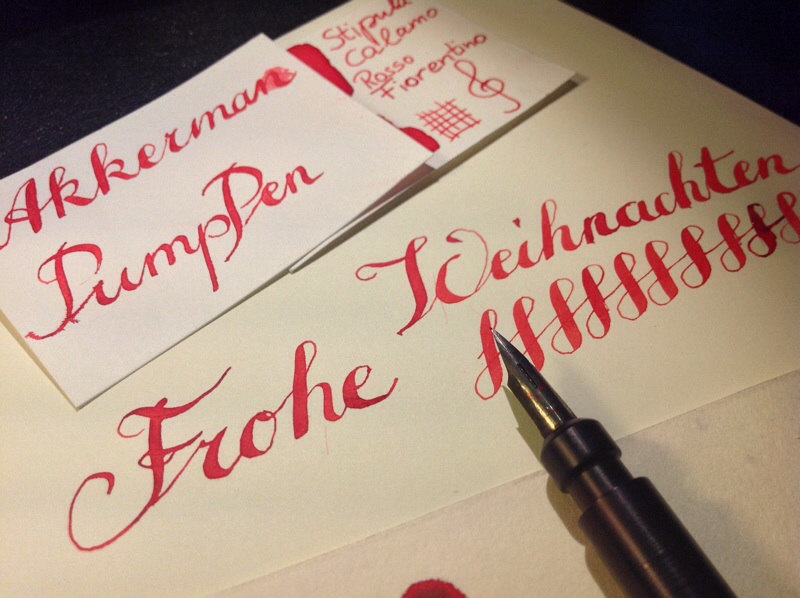 Akkerman
PumpPen
Stipula
Calamo
Rosso
Fiorentino
Frohe
Weihnachten